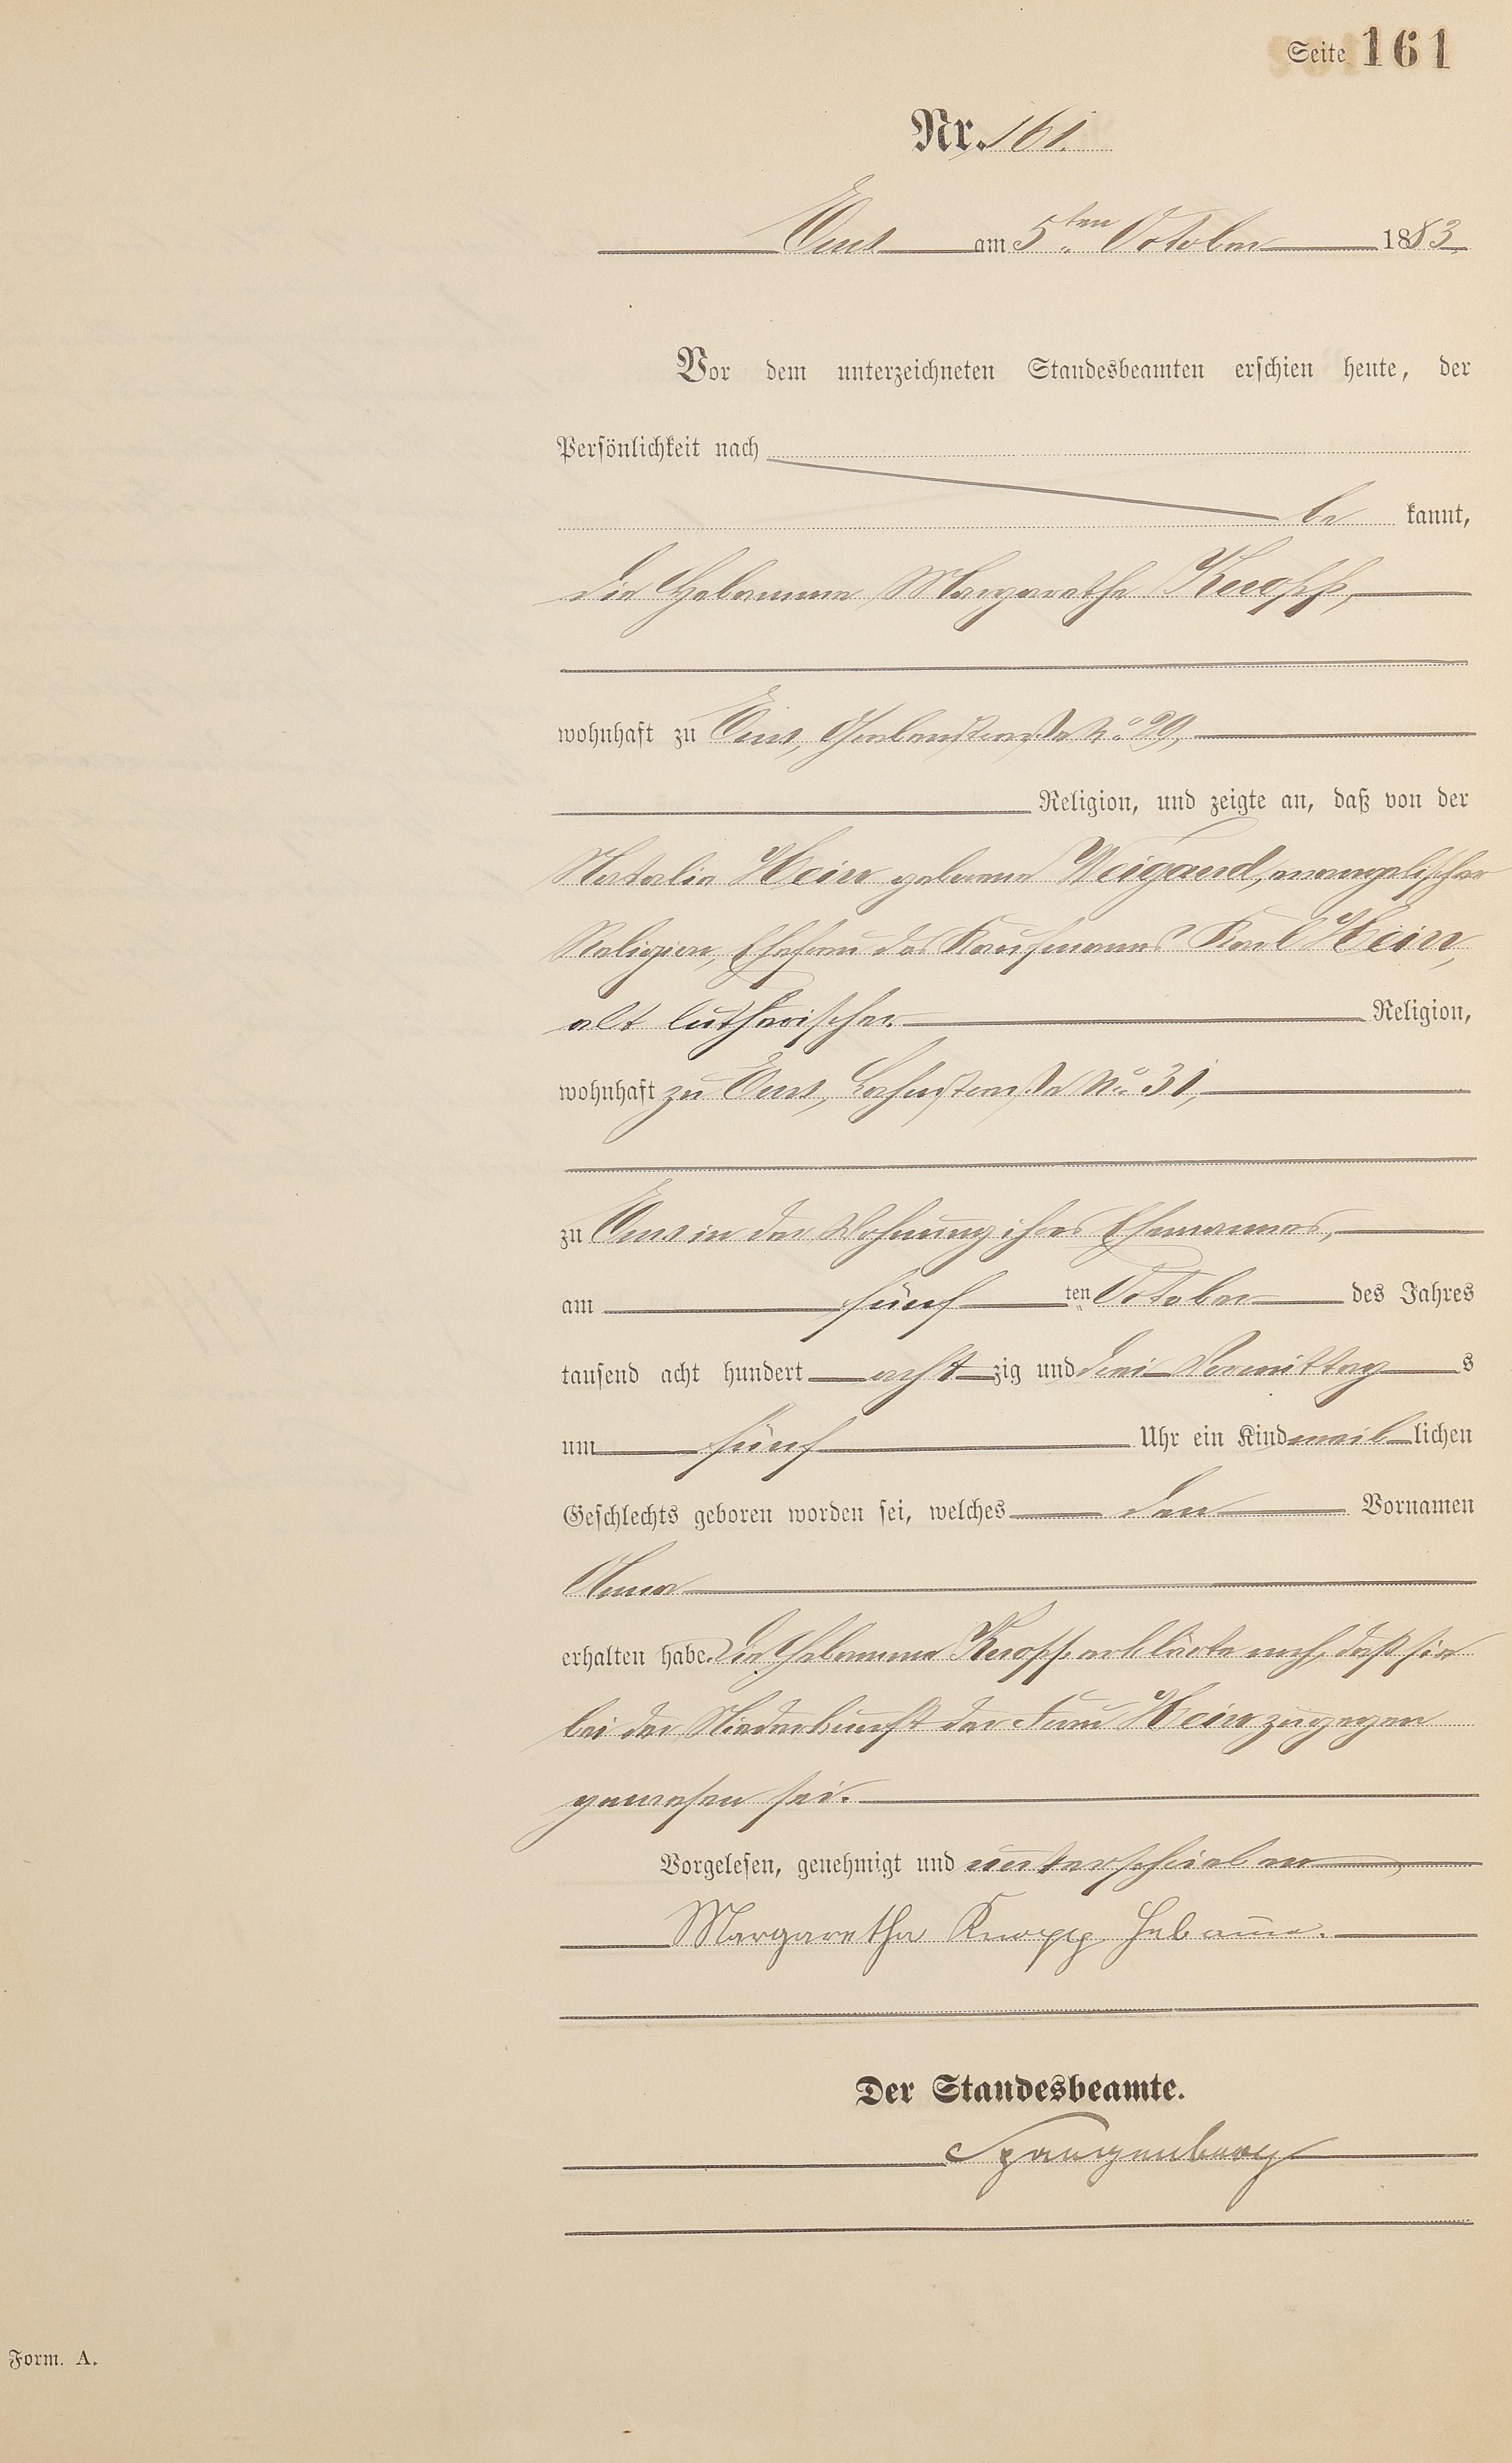 Seite 161
Nr. 161.
Ems am 5ten October 1883.
Vor dem unterzeichneten Standesbeamten erschien heute, der
Persönlichkeit nach
be kannt,
die Hebamme Margarethe Knopp,
wohnhaft zu Ems, Grabenstraße No 29,
Religion, und zeigte an, daß von der
Natalie Hein geborene Weigand, evangelischer
Religion, Ehefrau des Kaufmanns Karl Hein,
alt lutherischer Religion,
wohnhaft zu Ems, Lahnstraße No 31,
zu Ems in der Wohnung ihres Ehemannes,
am fünf ten October des Jahres
tausend acht hundert acht zig und drei Vormittag s
um fünf Uhr ein Kind weib lichen
Geschlechts geboren worden sei, welches den Vornamen
Anna
erhalten habe. Die Hebamme Knopp erklärte noch, daß sie
bei der Niederkunft der Frau Hein zugegen
gewesen sei.
Vorgelesen, genehmigt und unterschrieben
Margaretha Knopp Hebam̅e.
Der Standesbeamte.
Spangenberg
Form. A.